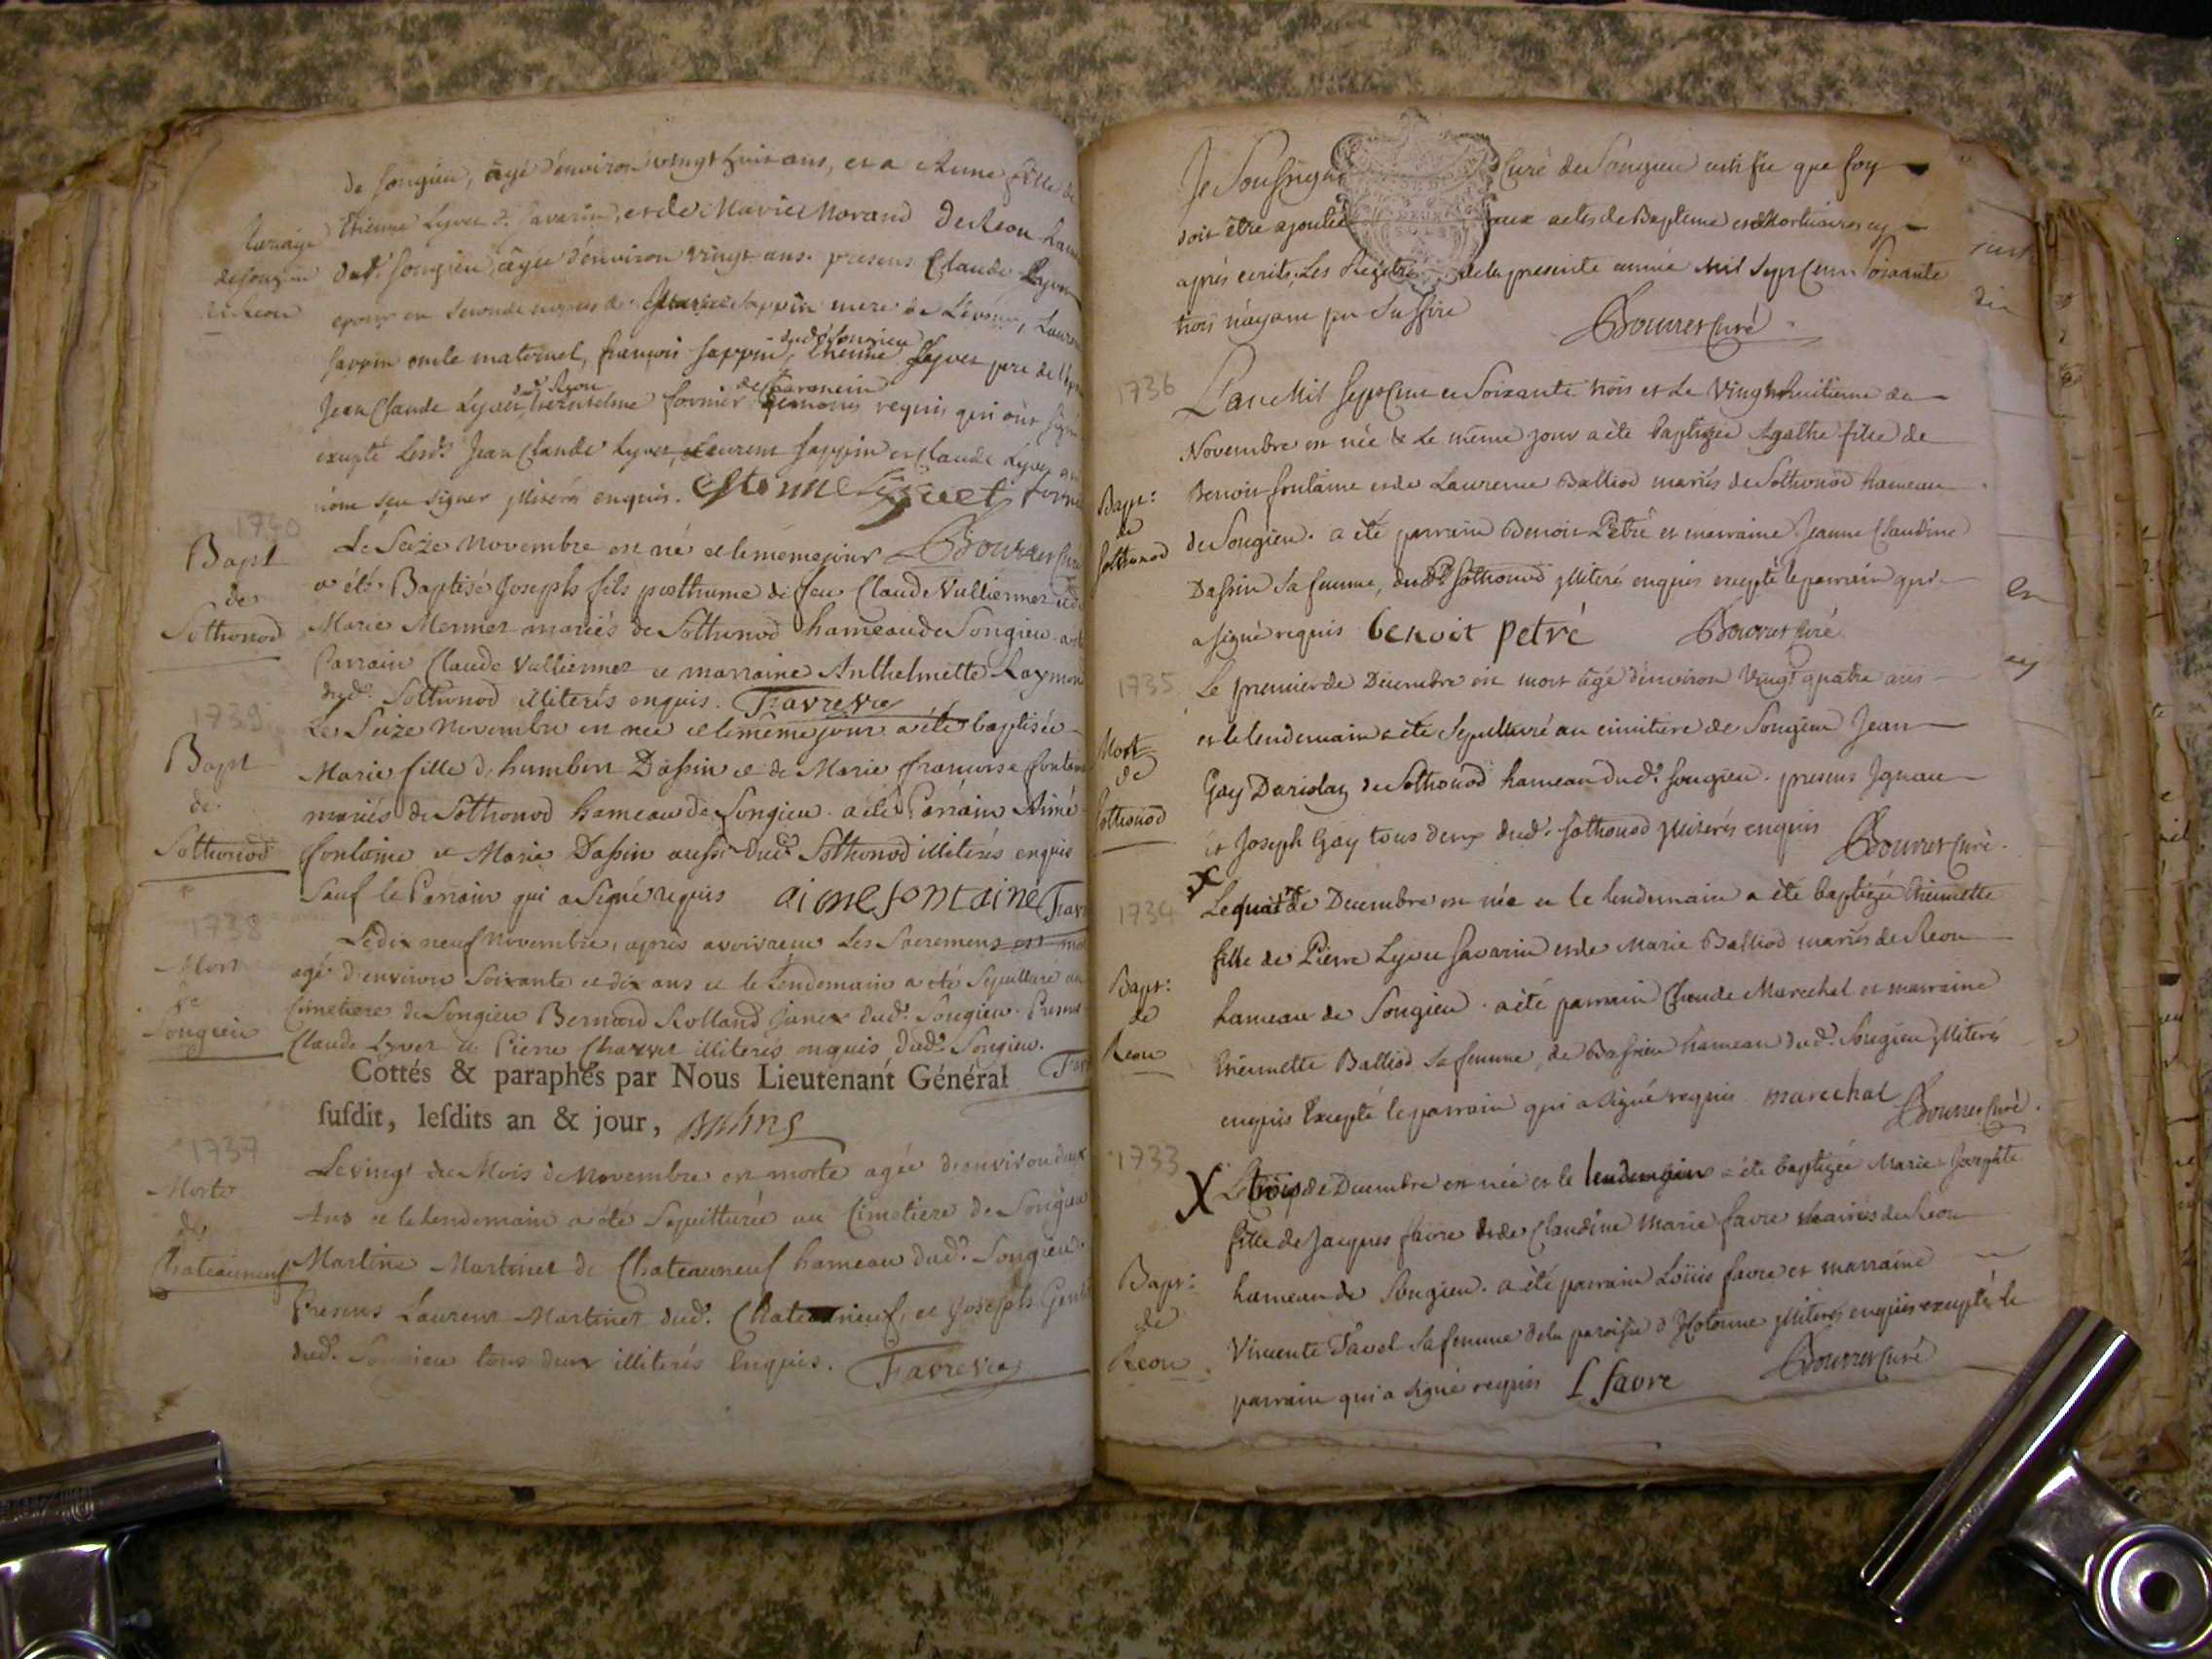 de Songieu, âgé d'environ vingt huit ans, et a Anne fille de
Mariage
de Songieu
et Reou
Etienne Lyvet d. Savarin, et de Marie Morand de Reou ham
dud.' Songieu âgée d'environ vingt ans. presens Claude Lyvet
epoux en seconde nopces de Marie Sappin mere de L'epoux, Lauren
Sappin oncle maternel, françois Sappin, dud.' Songieu Etienne Lyvet pere de l'ep
Jean Claude Lyvet dud. Reou, fornier temoins requis qui ont signé
excepté lesd.s Jean Claude Lyvet, Laurent Sappin et Claude Lyvet qui
n'ont sçu signer illiterés enquis. Estienne Lyvet forni
1740
Bapt
de
Sothonod
Le Seize Novembre est né et le meme jour Bouvier Curé
a été Baptisé Joseph fils posthume de feu Claude Vulliermet et de
Marie Mermet mariés de Sothonod hameau de Songieu a été
Parrain Claude Vulliermet et marraine Anthelmette Raymond
dud.' Sothonod illiterés enquis. Favre vic
1739
Bapt
de
Sothonod
Le Seize Novembre est née et le meme jour a été baptisée
Marie fille d'humbert Dassin et de Marie françoise fontaine
mariés de Sothonod hameau de Songieu. a été Parrain Aimé
fontaine et Marie Dassin aussi dud.' Sothonod illiterés enquis
Sauf le Parrain qui a Signé requis aime fontaine Favr
1738
Mort
de
Songieu
Le dix neuf Novembre, après avoir reçu les Sacremens est mort
agé d'environ Soixante et dix ans et le Lendemain a été Sepulturé au
Cimetiere de Songieu Bernard Rolland dud.' Songieu. Presens
Claude Lyvet et Pierre Charvet illiterés enquis dud.' Songieu.
Cottés & paraphés par Nous Lieutenant Général
susdit, lesdits an & jour,
1737
Morte
de
Chateauneuf
Le vingt du Mois de Novembre est morte agée d'environ deux
Ans et le lendemain a été Sepulturée au Cimetiere de Songieu
Martine Martinet de Chateauneuf hameau dud.' Songieu.
Presens Laurent Martinet dud.' Chateauneuf, et Joseph
dud.' Songieu tous deux illiterés Enquis. Favre vic
Je Soussigné Curé de Songieu certifie que foy
doit être ajoutée aux actes de Bapteme et Mortuaires cy
après ecrits, Les Registres de la presente année Mil Sept Cent Soixante
trois n'ayant pu Suffire
Bouvier Curé
1736
Bapt:
de
Sothonod
L'an Mil Sept Cent et Soixante trois et Le Vingt huitieme de
Novembre est née & Le même jour a été Baptizée Agathe fille de
Benoit fontaine et de Laurence Balliod mariés de Sothonod hameau
de Songieu. a été parrain Benoit Petré et marraine Jeanne Claudine
Dassin sa femme, dud.' Sothonod illiteré enquis excepté le parrain qui
a signé requis benoit petré Bouvier Curé
1735
Mort
de
Sothonod
Le premier de Decembre est mort âgé d'environ Vingt quatre ans
et le lendemain a été Sepulturé au cimitiere de Songieu Jean
Gay Dariolay de Sothonod hameau dud.' Songieu. presens Ignace
et Joseph Gay tous deux dud.' Sothonod illiterés enquis Bouvier Curé.
1734
Bapt:
de
Reou
x
Le quatre de Decembre est née et le lendemain a été baptizée Etiennette
fille de Pierre Lyvet Savarin et de Marie Balliod mariés de Reou
hameau de Songieu. a été parrain Claude Marechal et marraine
Etiennette Balliod Sa femme, de Bassieu hameau dud.' Songieu illiterés
enquis Excepté le parrain qui a signé requis marechal Bouvier Curé.
1733
Bapt:
de
Reou
X
Le trois de Decembre est née et le lendemain a été baptizée Marie Josephte
fille de Jacques favre et de Claudine Marie favre mariés de Reou
hameau de Songieu. a été parrain Loüis favre et marraine
Vincente Pavel Sa femme de la paroisse d'Hotonne illiterés enquis excepté le
parrain qui a signé requis L favre Bouvier Curé